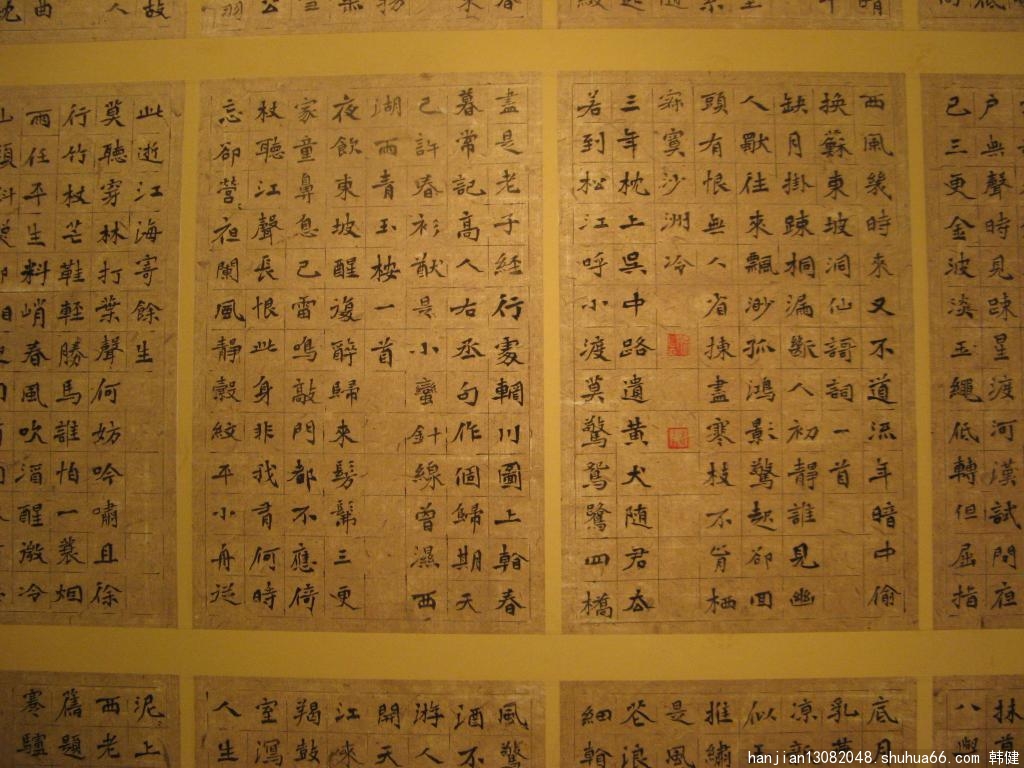 戶無聲時見踈星渡河漢試問夜
已三更金波淡玉繩低轉但屈指
西風幾時來又不道流年暗中偷
換蘇東坡洞仙謌詞一首
缺月掛踈桐漏斷人初靜誰見幽
人獨往來飄渺孤鴻影驚起卻回
頭有恨無人省揀盡寒枝不肯栖
寂寞沙洲冷
三年枕上吳中路遺黃犬隨君去
若到松江呼小渡莫驚鴛鷺四橋
盡是老子經行處輞川圖上翰春
暮常記高人右丞句作個歸期天
已許春衫猷是小蠻針線曾濕西
湖雨青玉桉一首
夜飲東坡醒復醉歸來髣髴三更
家童鼻息已雷鳴敲門都不應倚
杖聽江聲長恨此身非我有何時
忘卻營〻夜闌風靜縠紋平小舟從
此逝江海寄餘生
莫聽穿林打葉聲何妨吟嘯且徐
行竹杖芒鞋輕勝馬誰怕一蓑烟
雨任平生料峭春風吹酒醒微冷
山頭斜
抹
八
底月
乳
涼新
似玉
推繡
是風
花浪
細翰
風驚
酒不
游人
開天
江來
羯鼓
室瀉
人生
泥上
西老
舊題
蹇驢
hanjian13082048.shuhua66.com 韩健